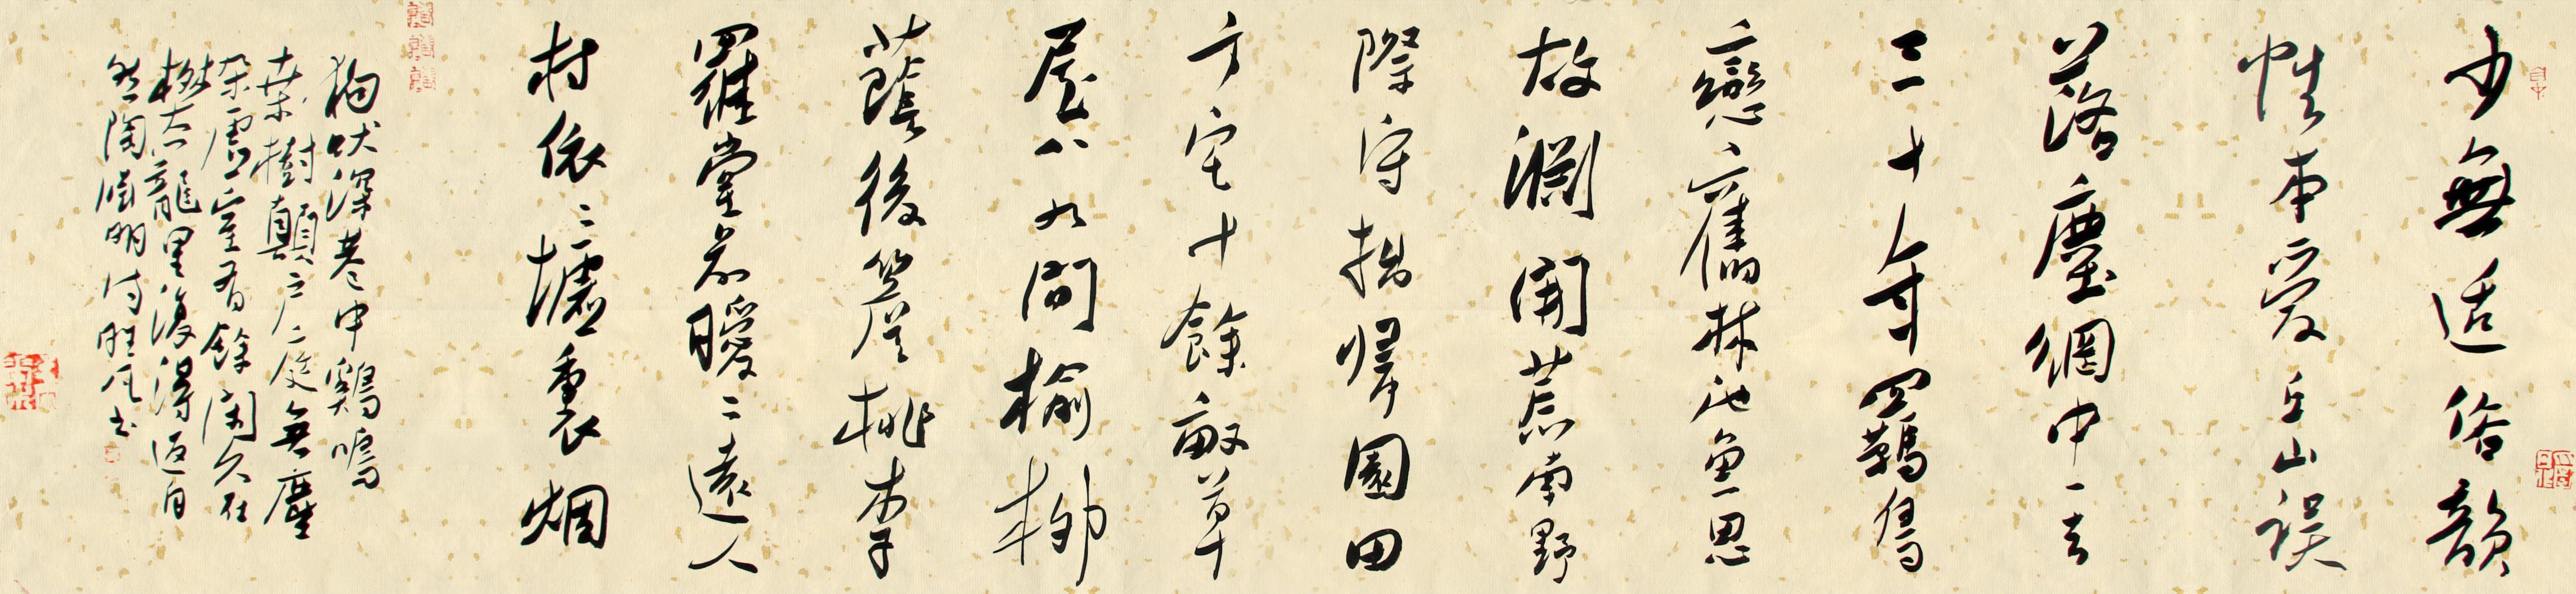 少無适俗韻
性本愛丘山誤
落塵網中一去
三十年羈鳥
戀舊林池魚思
故淵開荒南野
際守拙歸園田
方宅十餘畝草
屋八九間榆柳
蔭後簷桃李
羅堂前曖〻遠人
村依〻墟裏烟
狗吠深巷中鷄鳴
桑樹顛户庭無塵
雜虛室有餘閑久在
樊籠里復得返自
然陶淵明诗书